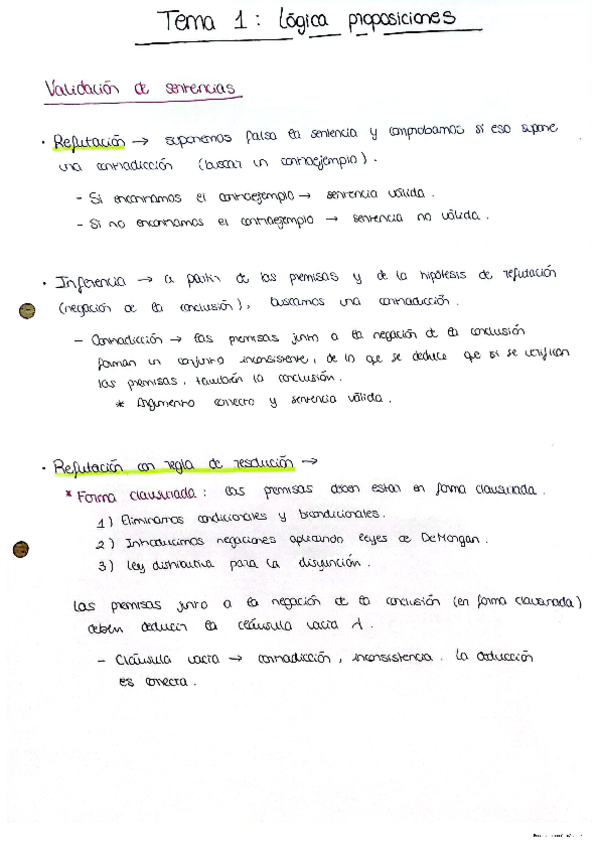 Tema 1: Lógica proposiciones
Validación de sentencias
· Refutación → suponemos falsa la sentencia y comprobamos si eso supone
una contradicción (buscar un contraejemplo).
- Si encontramos el contraejemplo → sentencia válida.
- Si no encontramos el contraejemplo → sentencia no válida.
· Inferencia → a partir de las premisas y de la hipótesis de refutación
(negación de la conclusión), buscamos una contradicción.
- Contradicción → las premisas junto a la negación de la conclusión
forman un conjunto inconsistente, de lo que se deduce que si se verifican
las premisas, también la conclusión.
* Argumento correcto y sentencia válida.
· Refutación con regla de resolución →
* Forma clausurada: las premisas deben estar en forma clausurada.
1) Eliminamos condicionales y bicondicionales.
2) Introducimos negaciones aplicando leyes de DeMorgan.
3) Ley distributiva para la disyunción.
Las premisas junto a la negación de la conclusión (en forma clausurada)
deben deducir la cláusula vacía λ.
- Cláusula vacía → contradicción, inconsistencia. La deducción
es correcta.